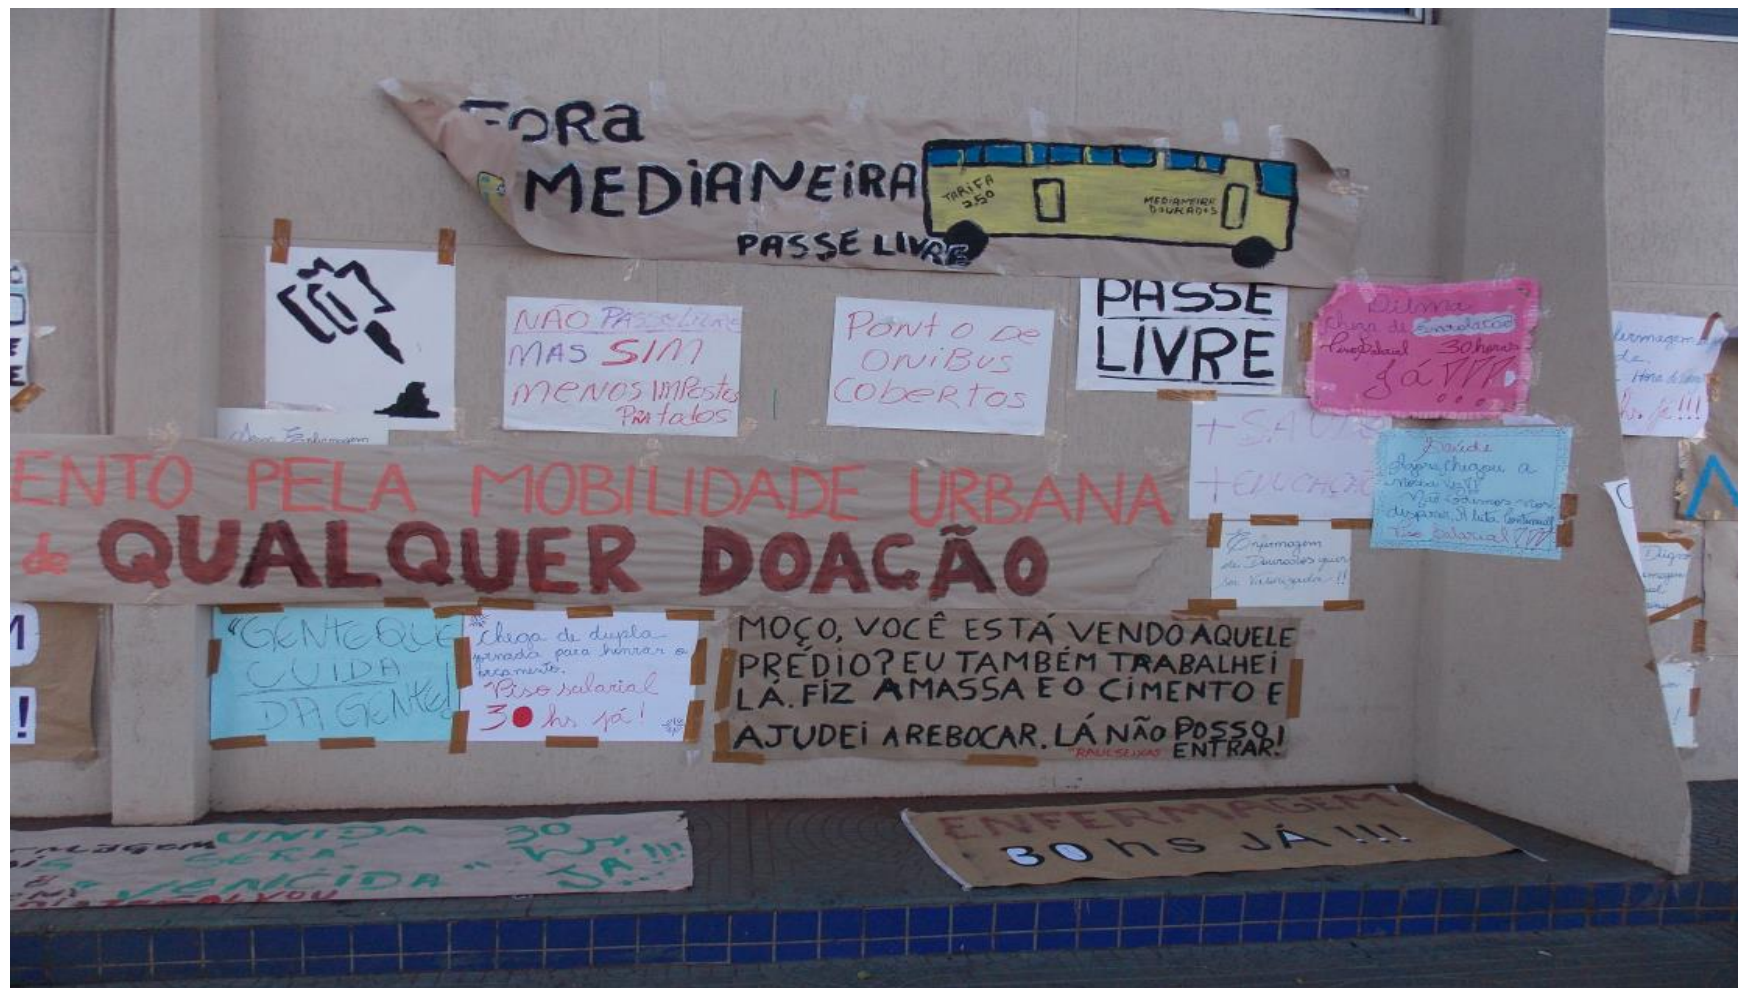 FORA
MEDIANEIRA
PASSE LIVRE
TARIFA
2.50
MEDIANEIRA
DOURADOS
NÃO PASSE LIVRE
MAS SIM
MENOS IMPOSTOS
PRA todos
Ponto DE
ONIBUS
COBERTOS
PASSE
LIVRE
Dilma
Chega de Enrolação
Piso Salarial 30 horas
Já !!!
+ SAÚDE
+ EDUCAÇÃO
Saúde
Agora chegou a
nossa vez!!
Não podemos nos
dispersar. A luta continua!
Piso Salarial !!!
Enfermagem
de Dourados quer
ser Valorizada !!
Enfermagem
ENTO PELA MOBILIDADE URBANA
de QUALQUER DOAÇÃO
"GENTE QUE
CUIDA
DA GENTE!
Chega de dupla
jornada para honrar o
orçamento.
Piso salarial
30 hs já!
MOÇO, VOCÊ ESTÁ VENDO AQUELE
PRÉDIO? EU TAMBÉM TRABALHEI
LÁ. FIZ A MASSA E O CIMENTO E
AJUDEI A REBOCAR. LÁ NÃO POSSO
ENTRAR!
"RAUL SEIXAS"
UNIDA 30
SERÁ hs
VENCIDA" JÁ!!!
ENFERMAGEM
30 hs JÁ!!!